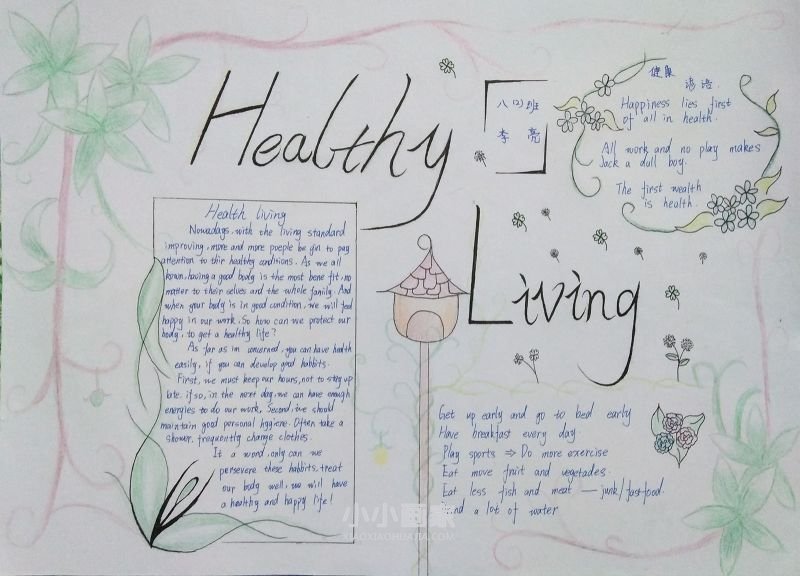 Healthy
Living
八(2)班
李亮
健康
谚语.
Happiness lies first
of all in health.
All work and no play makes
Jack a dull boy.
The first wealth
is health.
Health living
Nowadays, with the living standard
improving, more and more poeple be gin to pay
attention to thir healthy conditions. As we all
known, having a good body is the most bene fit, no
matter to their selves and the whole family. And
when your body is in good condition, we will feel
happy in our work. So how can we protect our
body, to get a healthy life?
As far as im concerned, you can have health
easily, if you can develop good habbits.
First, we must keep our hours, not to stay up
late. if so, in the next day, we can have enough
energies to do our work, Second, we should
maintain good personal hygiene. Often take a
shower, frequently change clothes.
It a word, only can we
persevere these habbits, treat
our body well, we will have
a healthy and happy life!
Get up early and go to bed early
Have breakfast every day.
Play sports ⇒ Do more exercise
Eat move fruit and vegetades.
Eat less fish and meat — junk/fastfood.
a lot of water
小小画家
XIAOXIAOHUAJIA.COM